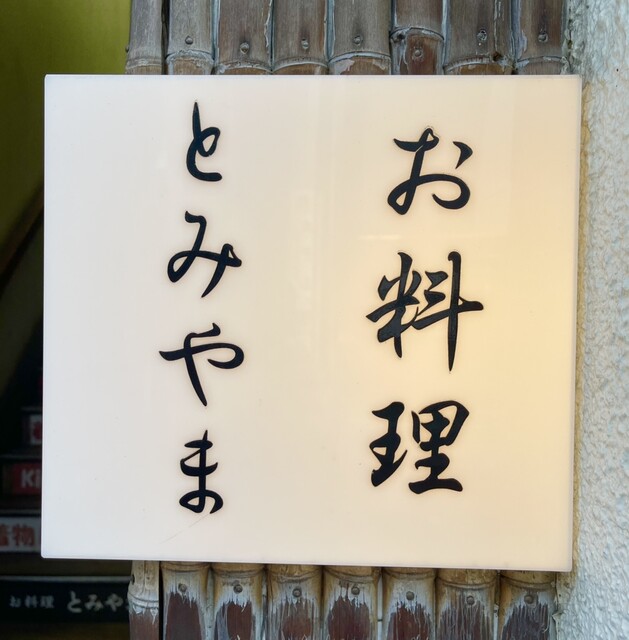 お料理
とみやま
Ki
お料理 とみや